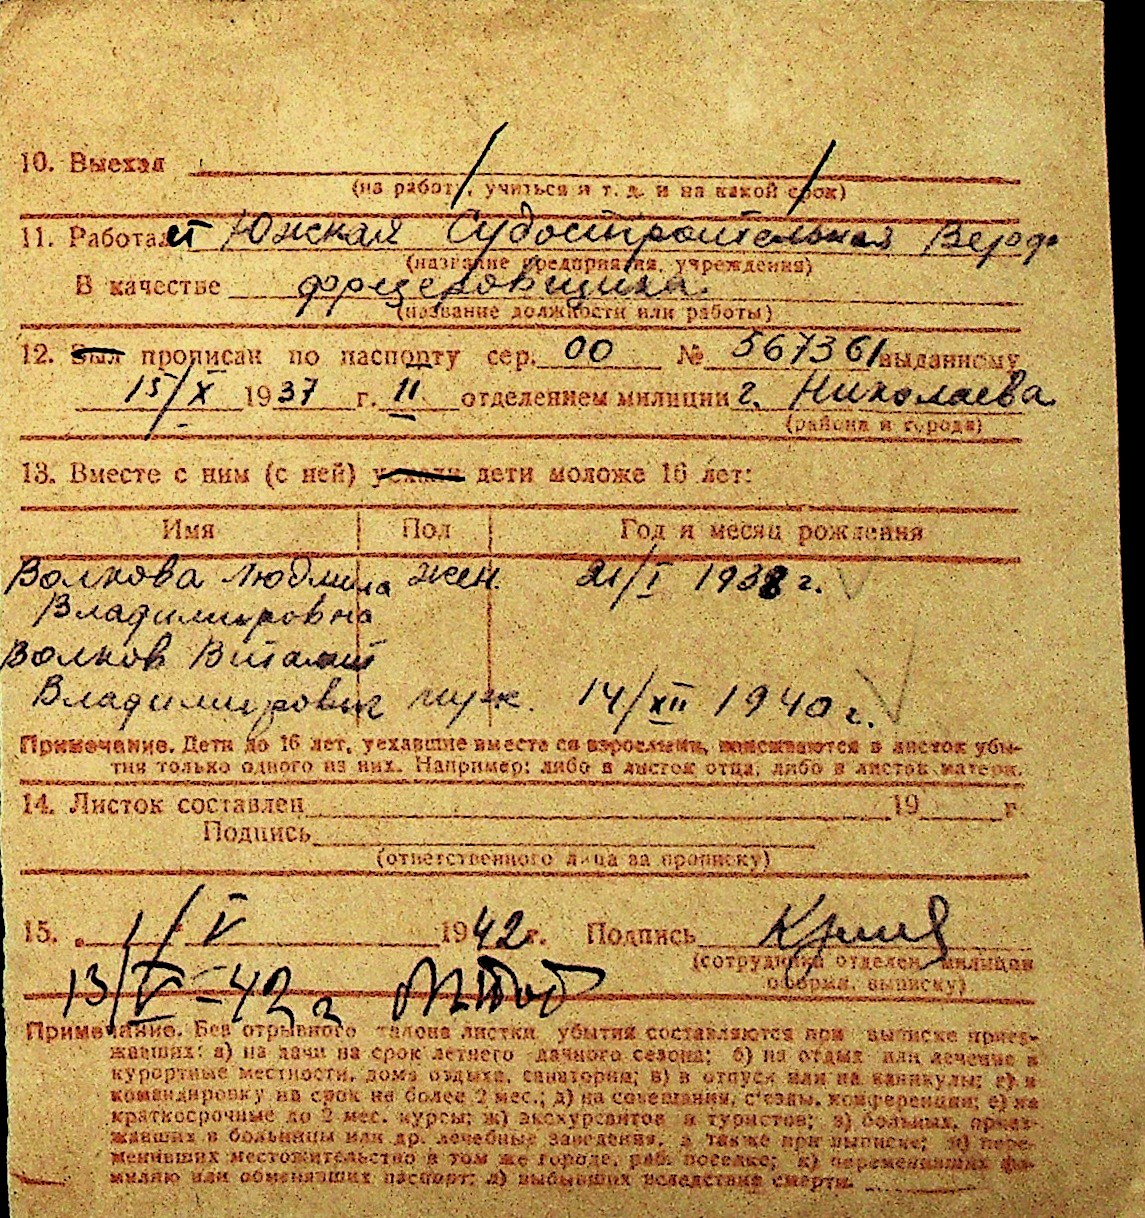 10. Выехал
(на работу, учиться и т. д. и на какой срок)
11. Работает Южская Судостроительная Верф
(название предприятия, учреждения)
В качестве фрезеровщика.
(название должности или работы)
12. Был прописан по паспорту сер. 00 № 567361 выданному
15/X 1937 г. II отделением милиции г. Николаева
(района и города)
13. Вместе с ним (с ней) уехали дети моложе 16 лет:
Имя Пол Год и месяц рождения
Волкова Людмила жен. 21/I 1938 г.
Владимировна
Волков Виталий
Владимирович муж. 14/XII 1940 г.
Примечание. Дети до 16 лет, уехавшие вместе со взрослыми, вписываются в листок убы-
тия только одного из них. Например: либо в листок отца, либо в листок матери.
14. Листок составлен 19 г.
Подпись
(ответственного лица за прописку)
15. 1/V 1942 г. Подпись
(сотрудника отделен. милиции
оформ. выписку)
13/V-42 г
Примечание. Без отрывного талона листки убытия составляются при выписке приез-
жавших: а) на дачи на срок летнего дачного сезона; б) на отдых или лечение в
курортные местности, дома отдыха, санатории; в) в отпуск или на каникулы; г) в
командировку на срок не более 2 мес.; д) на совещания, съезды, конференции; е) на
краткосрочные до 2 мес. курсы; ж) экскурсантов и туристов; з) больных, приез-
жавших в больницы или др. лечебные заведения, а также при выписке; и) пере-
менивших местожительство в том же городе, раб. поселке; к) переменивших фа-
милию или обменявших паспорт; л) выбывших вследствие смерти.